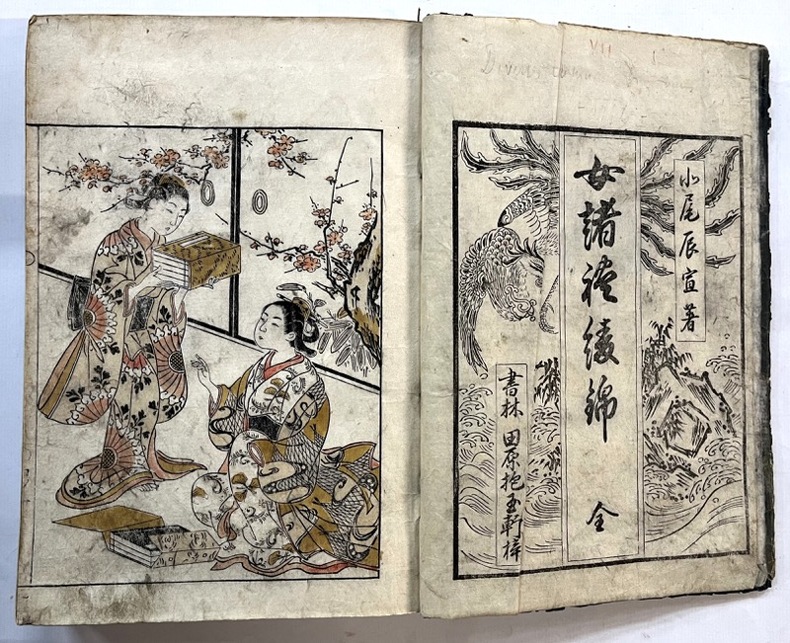 VII
北尾辰宣著
女諸禮綾錦 全
書林 田原抱玉軒梓